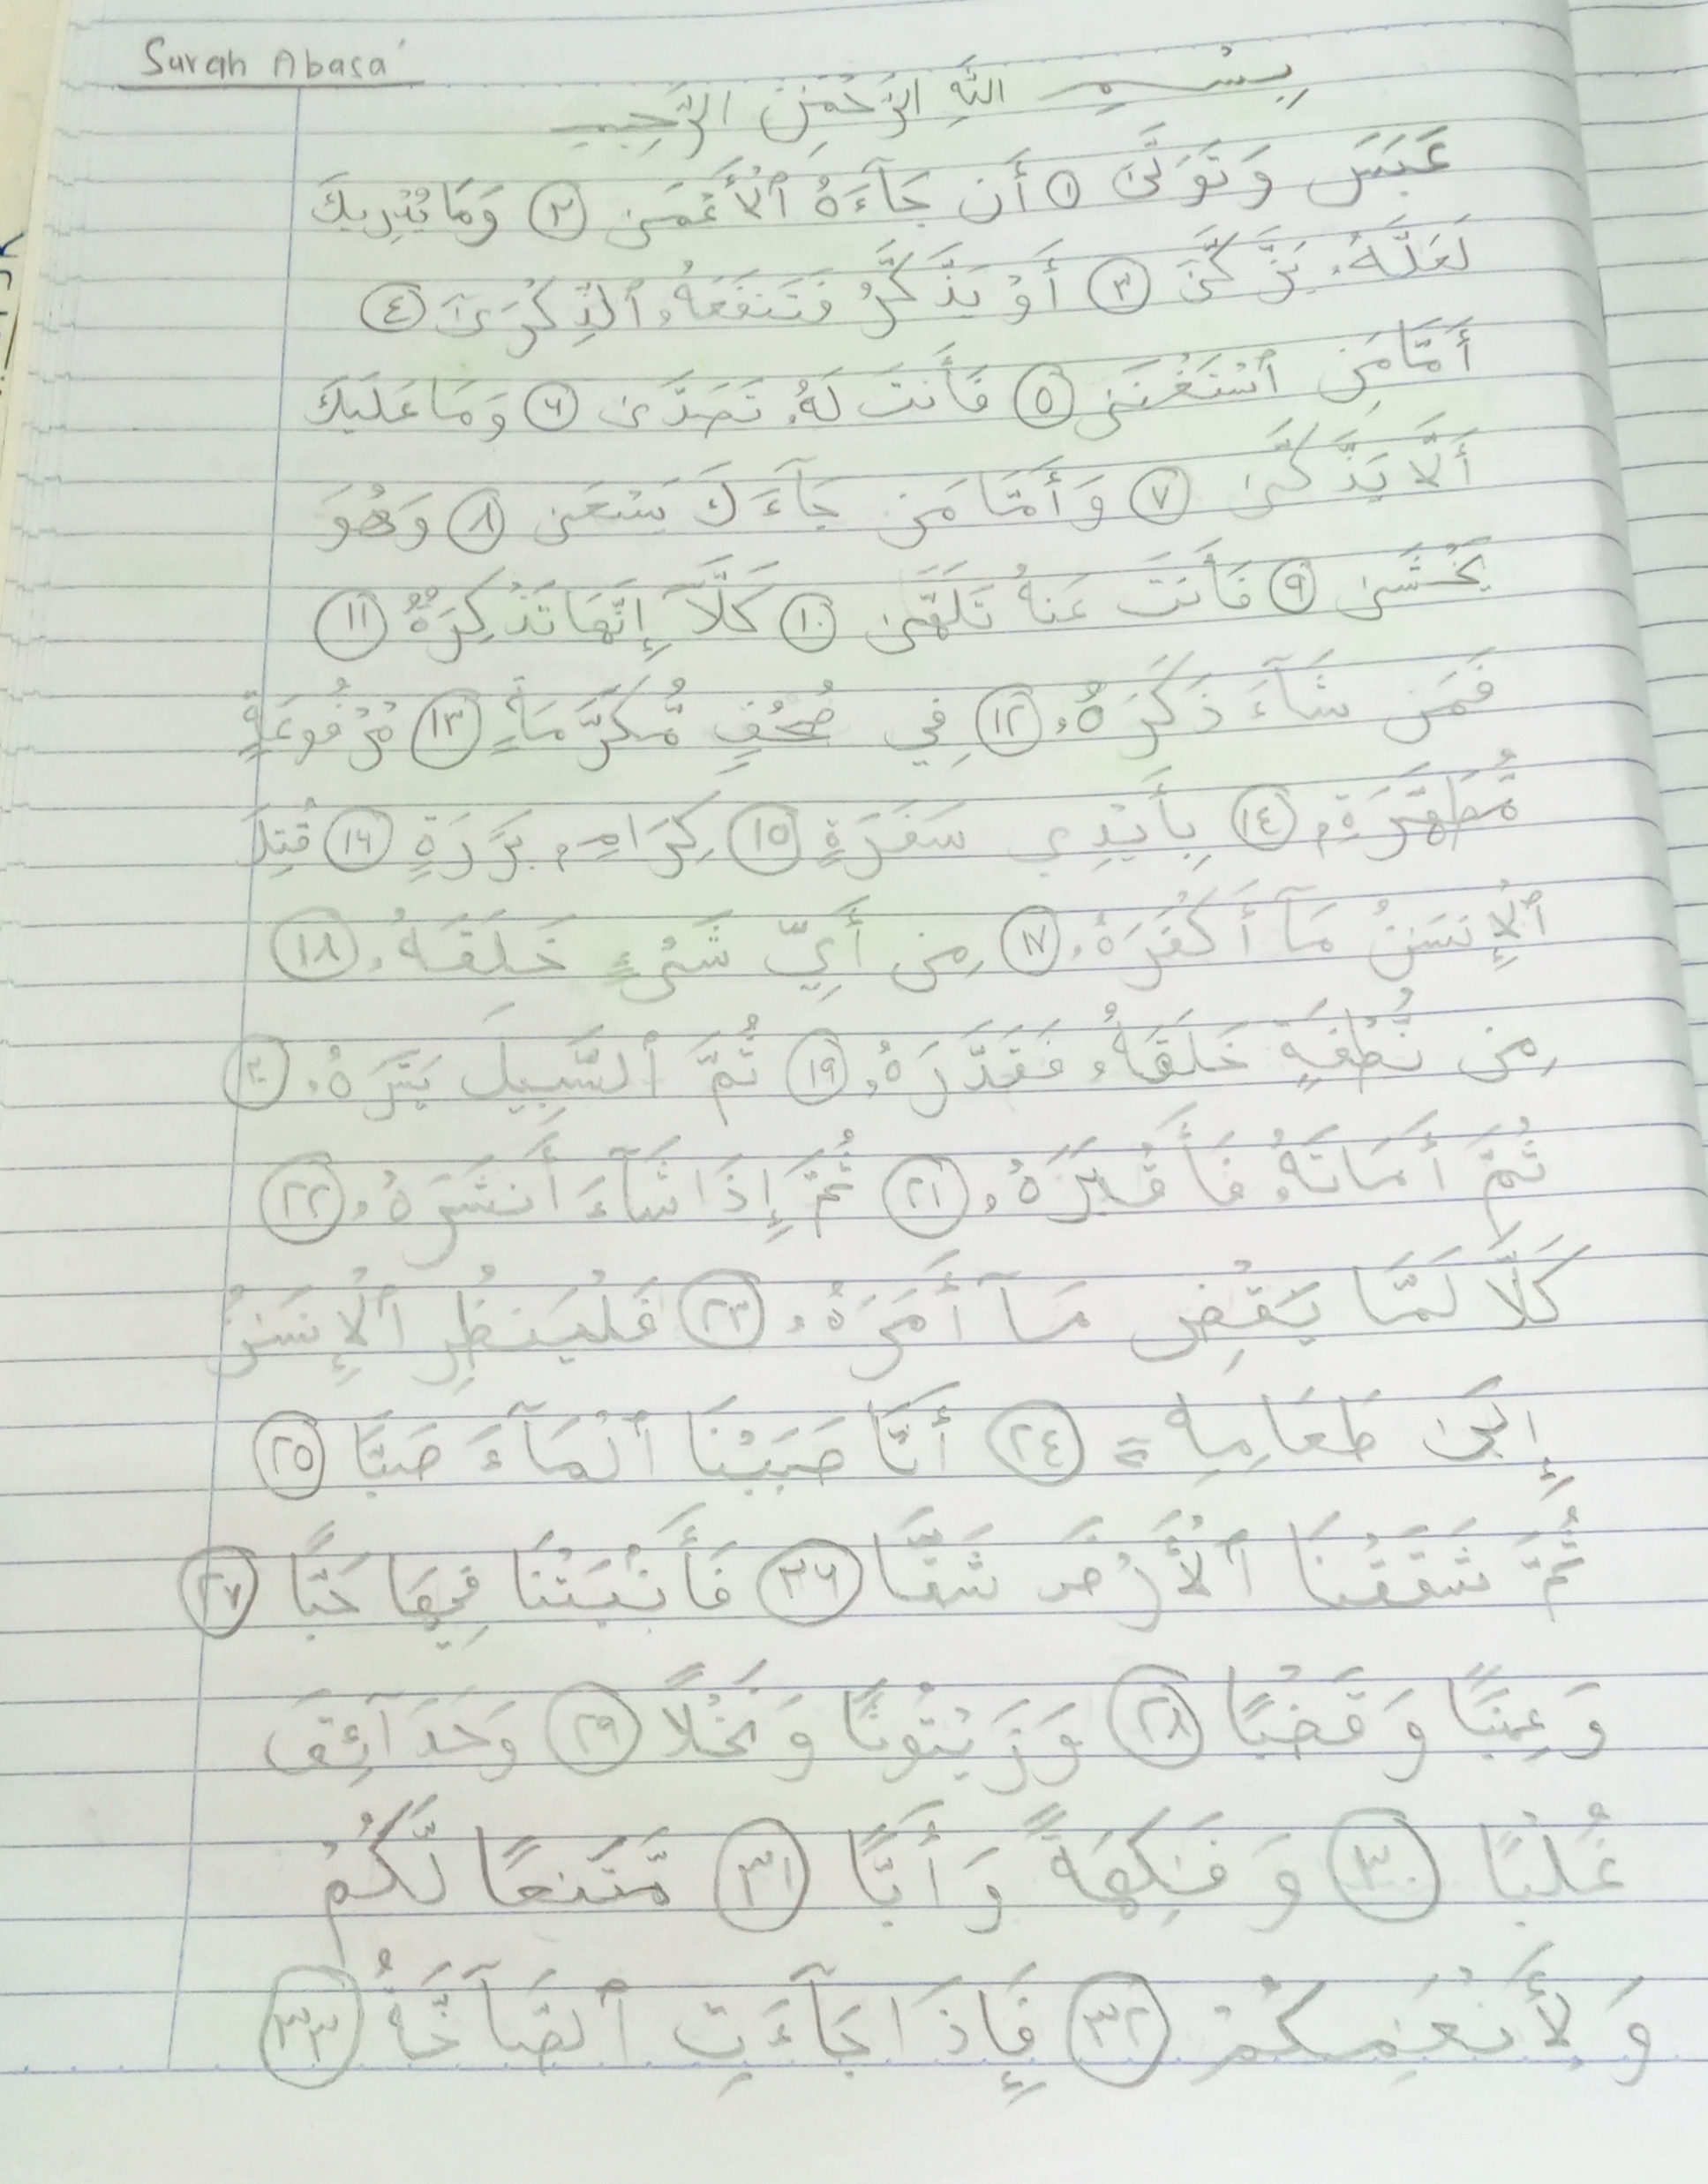 Surah Abasa'
بِسْمِ اللَّهِ الرَّحْمَنِ الرَّحِيمِ
عَبَسَ وَتَوَلَّىٰ ١ أَن جَآءَهُ ٱلْأَعْمَىٰ ٢ وَمَا يُدْرِيكَ
لَعَلَّهُۥ يَزَّكَّىٰٓ ٣ أَوْ يَذَّكَّرُ فَتَنفَعَهُ ٱلذِّكْرَىٰٓ ٤
أَمَّا مَنِ ٱسْتَغْنَىٰ ٥ فَأَنتَ لَهُۥ تَصَدَّىٰ ٦ وَمَا عَلَيْكَ
أَلَّا يَذَّكَّىٰ ٧ وَأَمَّا مَن جَآءَكَ يَسْعَىٰ ٨ وَهُوَ
يَخْشَىٰ ٩ فَأَنتَ عَنْهُ تَلَهَّىٰ ١٠ كَلَّآ إِنَّهَا تَذْكِرَةٌ ١١
فَمَن شَآءَ ذَكَرَهُۥ ١٢ فِي صُحُفٍ مُّكَرَّمَةٍ ١٣ مَّرْفُوعَةٍ
مُّطَهَّرَةٍۭ ١٤ بِأَيْدِي سَفَرَةٍ ١٥ كِرَامٍۭ بَرَرَةٍ ١٦ قُتِلَ
ٱلْإِنسَٰنُ مَآ أَكْفَرَهُۥ ١٧ مِنْ أَيِّ شَىْءٍ خَلَقَهُۥ ١٨
مِن نُّطْفَةٍ خَلَقَهُۥ فَقَدَّرَهُۥ ١٩ ثُمَّ ٱلسَّبِيلَ يَسَّرَهُۥ ٢٠
ثُمَّ أَمَاتَهُۥ فَأَقْبَرَهُۥ ٢١ ثُمَّ إِذَا شَآءَ أَنشَرَهُۥ ٢٢
كَلَّا لَمَّا يَقْضِ مَآ أَمَرَهُۥ ٢٣ فَلْيَنظُرِ ٱلْإِنسَٰنُ
إِلَىٰ طَعَامِهِۦٓ ٢٤ أَنَّا صَبَبْنَا ٱلْمَآءَ صَبًّا ٢٥
ثُمَّ شَقَقْنَا ٱلْأَرْضَ شَقًّا ٣٦ فَأَنۢبَتْنَا فِيهَا حَبًّا ٢٧
وَعِنَبًا وَقَضْبًا ٢٨ وَزَيْتُونًا وَنَخْلًا ٢٩ وَحَدَآئِقَ
غُلْبًا ٣٠ وَفَٰكِهَةً وَأَبًّا ٣١ مَّتَٰعًا لَّكُمْ
وَلِأَنْعَٰمِكُمْ ٣٢ فَإِذَا جَآءَتِ ٱلصَّآخَّةُ ٣٣